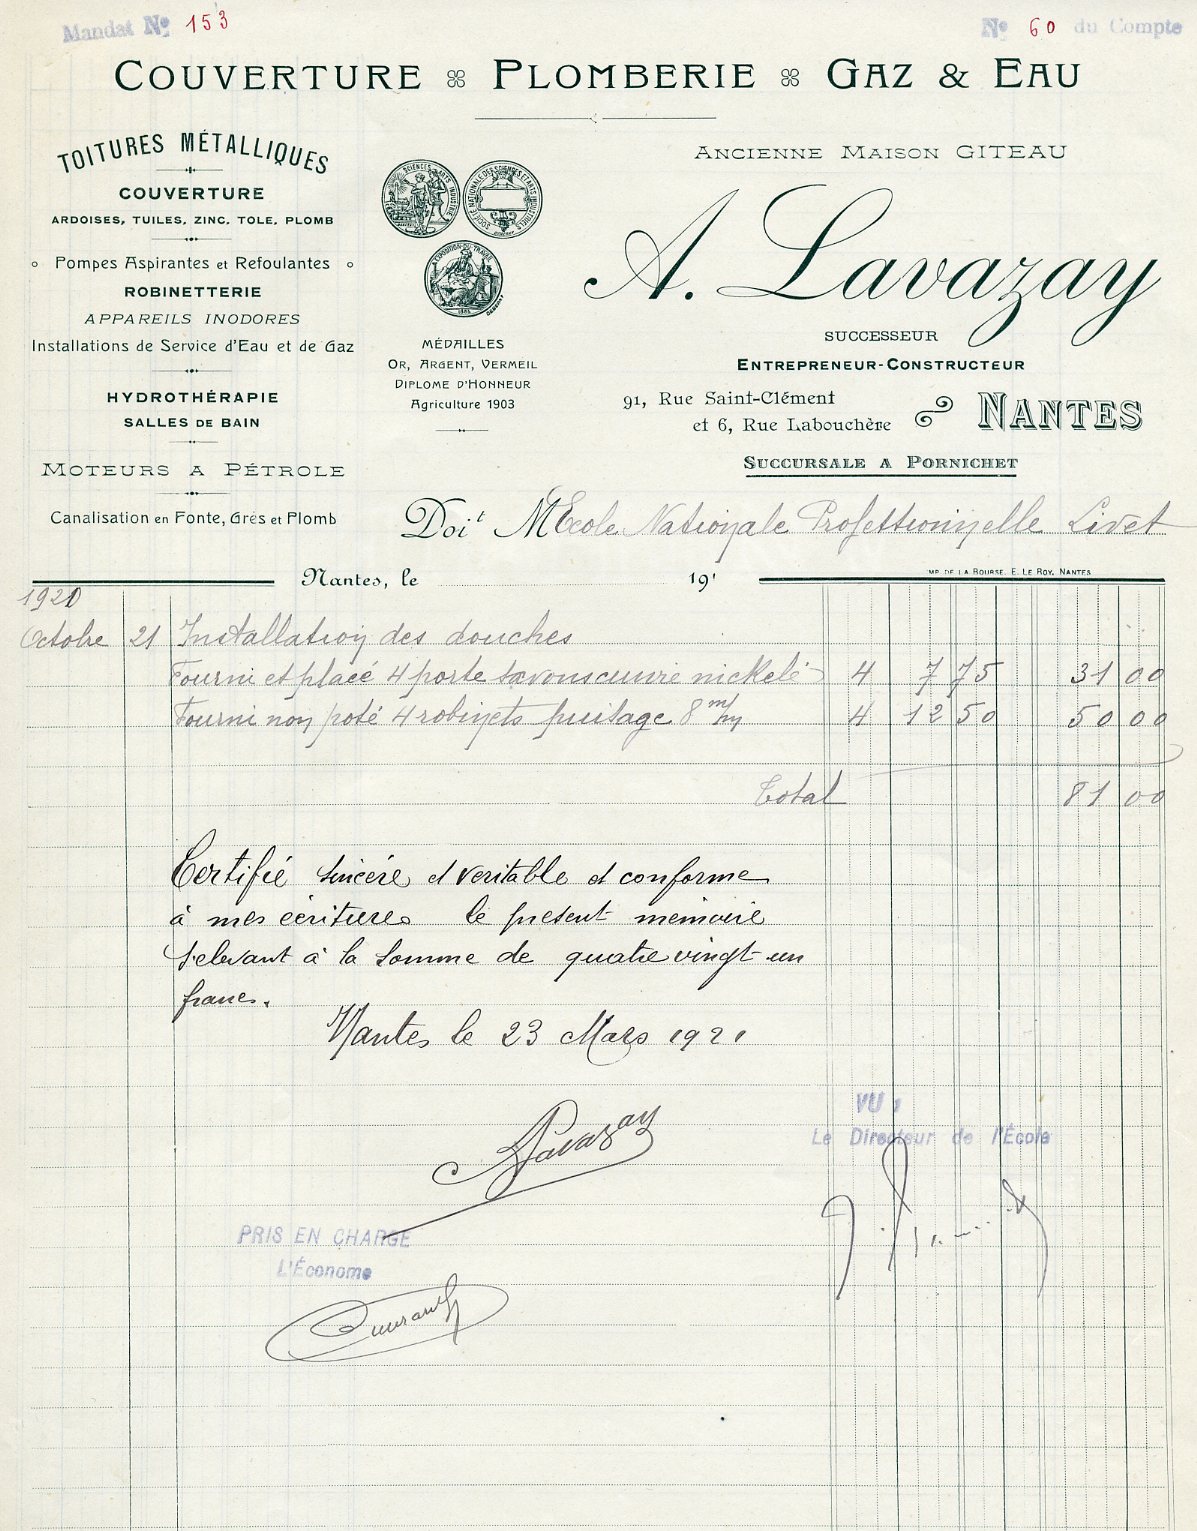 Mandat No 153
No 60 du Compte
COUVERTURE PLOMBERIE GAZ & EAU
TOITURES MÉTALLIQUES
COUVERTURE
ARDOISES, TUILES, ZINC, TOLE, PLOMB
Pompes Aspirantes et Refoulantes
ROBINETTERIE
APPAREILS INODORES
Installations de Service d'Eau et de Gaz
HYDROTHÉRAPIE
SALLES DE BAIN
MOTEURS A PÉTROLE
Canalisation en Fonte, Grès et Plomb
MÉDAILLES
OR, ARGENT, VERMEIL
DIPLOME D'HONNEUR
Agriculture 1903
ANCIENNE MAISON GITEAU
A. Lavazay
SUCCESSEUR
ENTREPRENEUR-CONSTRUCTEUR
91, Rue Saint-Clément
et 6, Rue Labouchère
NANTES
SUCCURSALE A PORNICHET
Doit M Ecole Nationale Professionnelle Livet
Nantes, le 19
IMP. DE LA BOURSE. E. LE ROY, NANTES
1920
Octobre 21 Installation des douches
Fourni et placé 4 porte savons cuivre nickelé 4 7 75 31 00
Fourni non posé 4 robinets puisage 8 m/m 4 12 50 50 00
Total 81 00
Certifié sincére et veritable et conforme
à mes écritures le présent mémoire
s'elevant à la somme de quatre vingt un
francs.
Nantes le 23 Mars 1921
A Lavazay
VU :
Le Directeur de l'École
PRIS EN CHARGE
L'Économe